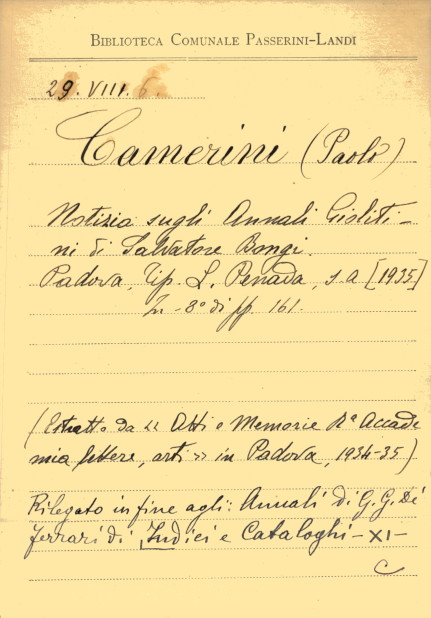 BIBLIOTECA COMUNALE PASSERINI-LANDI
29. VIII. 6.
Camerini (Paolo)
Notizia sugli Annali Gioliti-
ni di Salvatore Bongi.
Padova, Tip. L. Penada, s.a [1935]
In-8º di pp. 161.
(Estratto da << Atti e Memorie Rª Accade
mia lettere, arti >> in Padova, 1934-35)
Rilegato in fine agli: Annali di G. G. De
Ferrari di Indici e Cataloghi - XI -
C